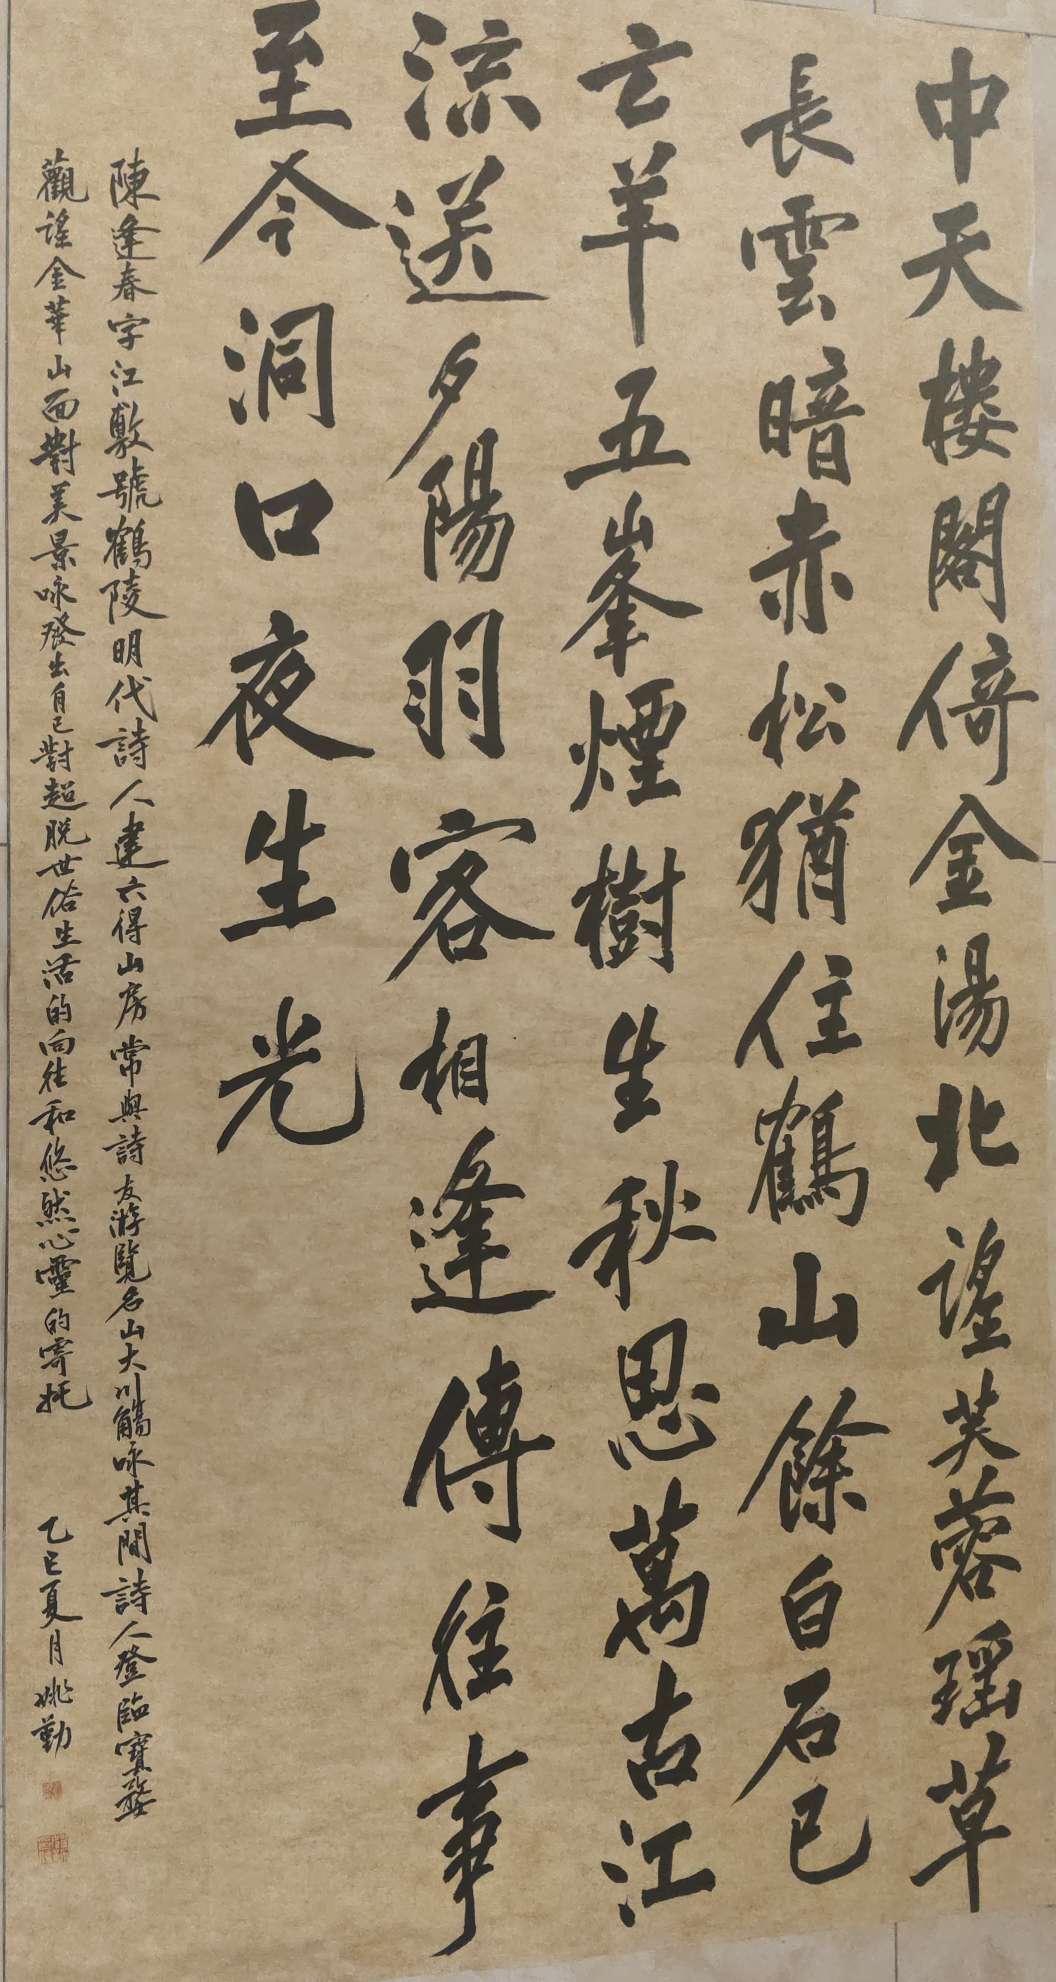 中天樓閣倚金湯北望芙蓉瑶草
長雲暗赤松猶住鶴山餘白石已
亡羊五峯煙樹生秋思萬古江
流送夕陽羽客相逢傳往事
至今洞口夜生光
陳逢春字江敷號鶴陵明代詩人建六得山房常與詩友游覽名山大川觴咏其間詩人登臨寶婺
觀望金華山面對美景咏發出自己對超脱世俗生活的向往和悠然心靈的寄托
乙巳夏月姚勤